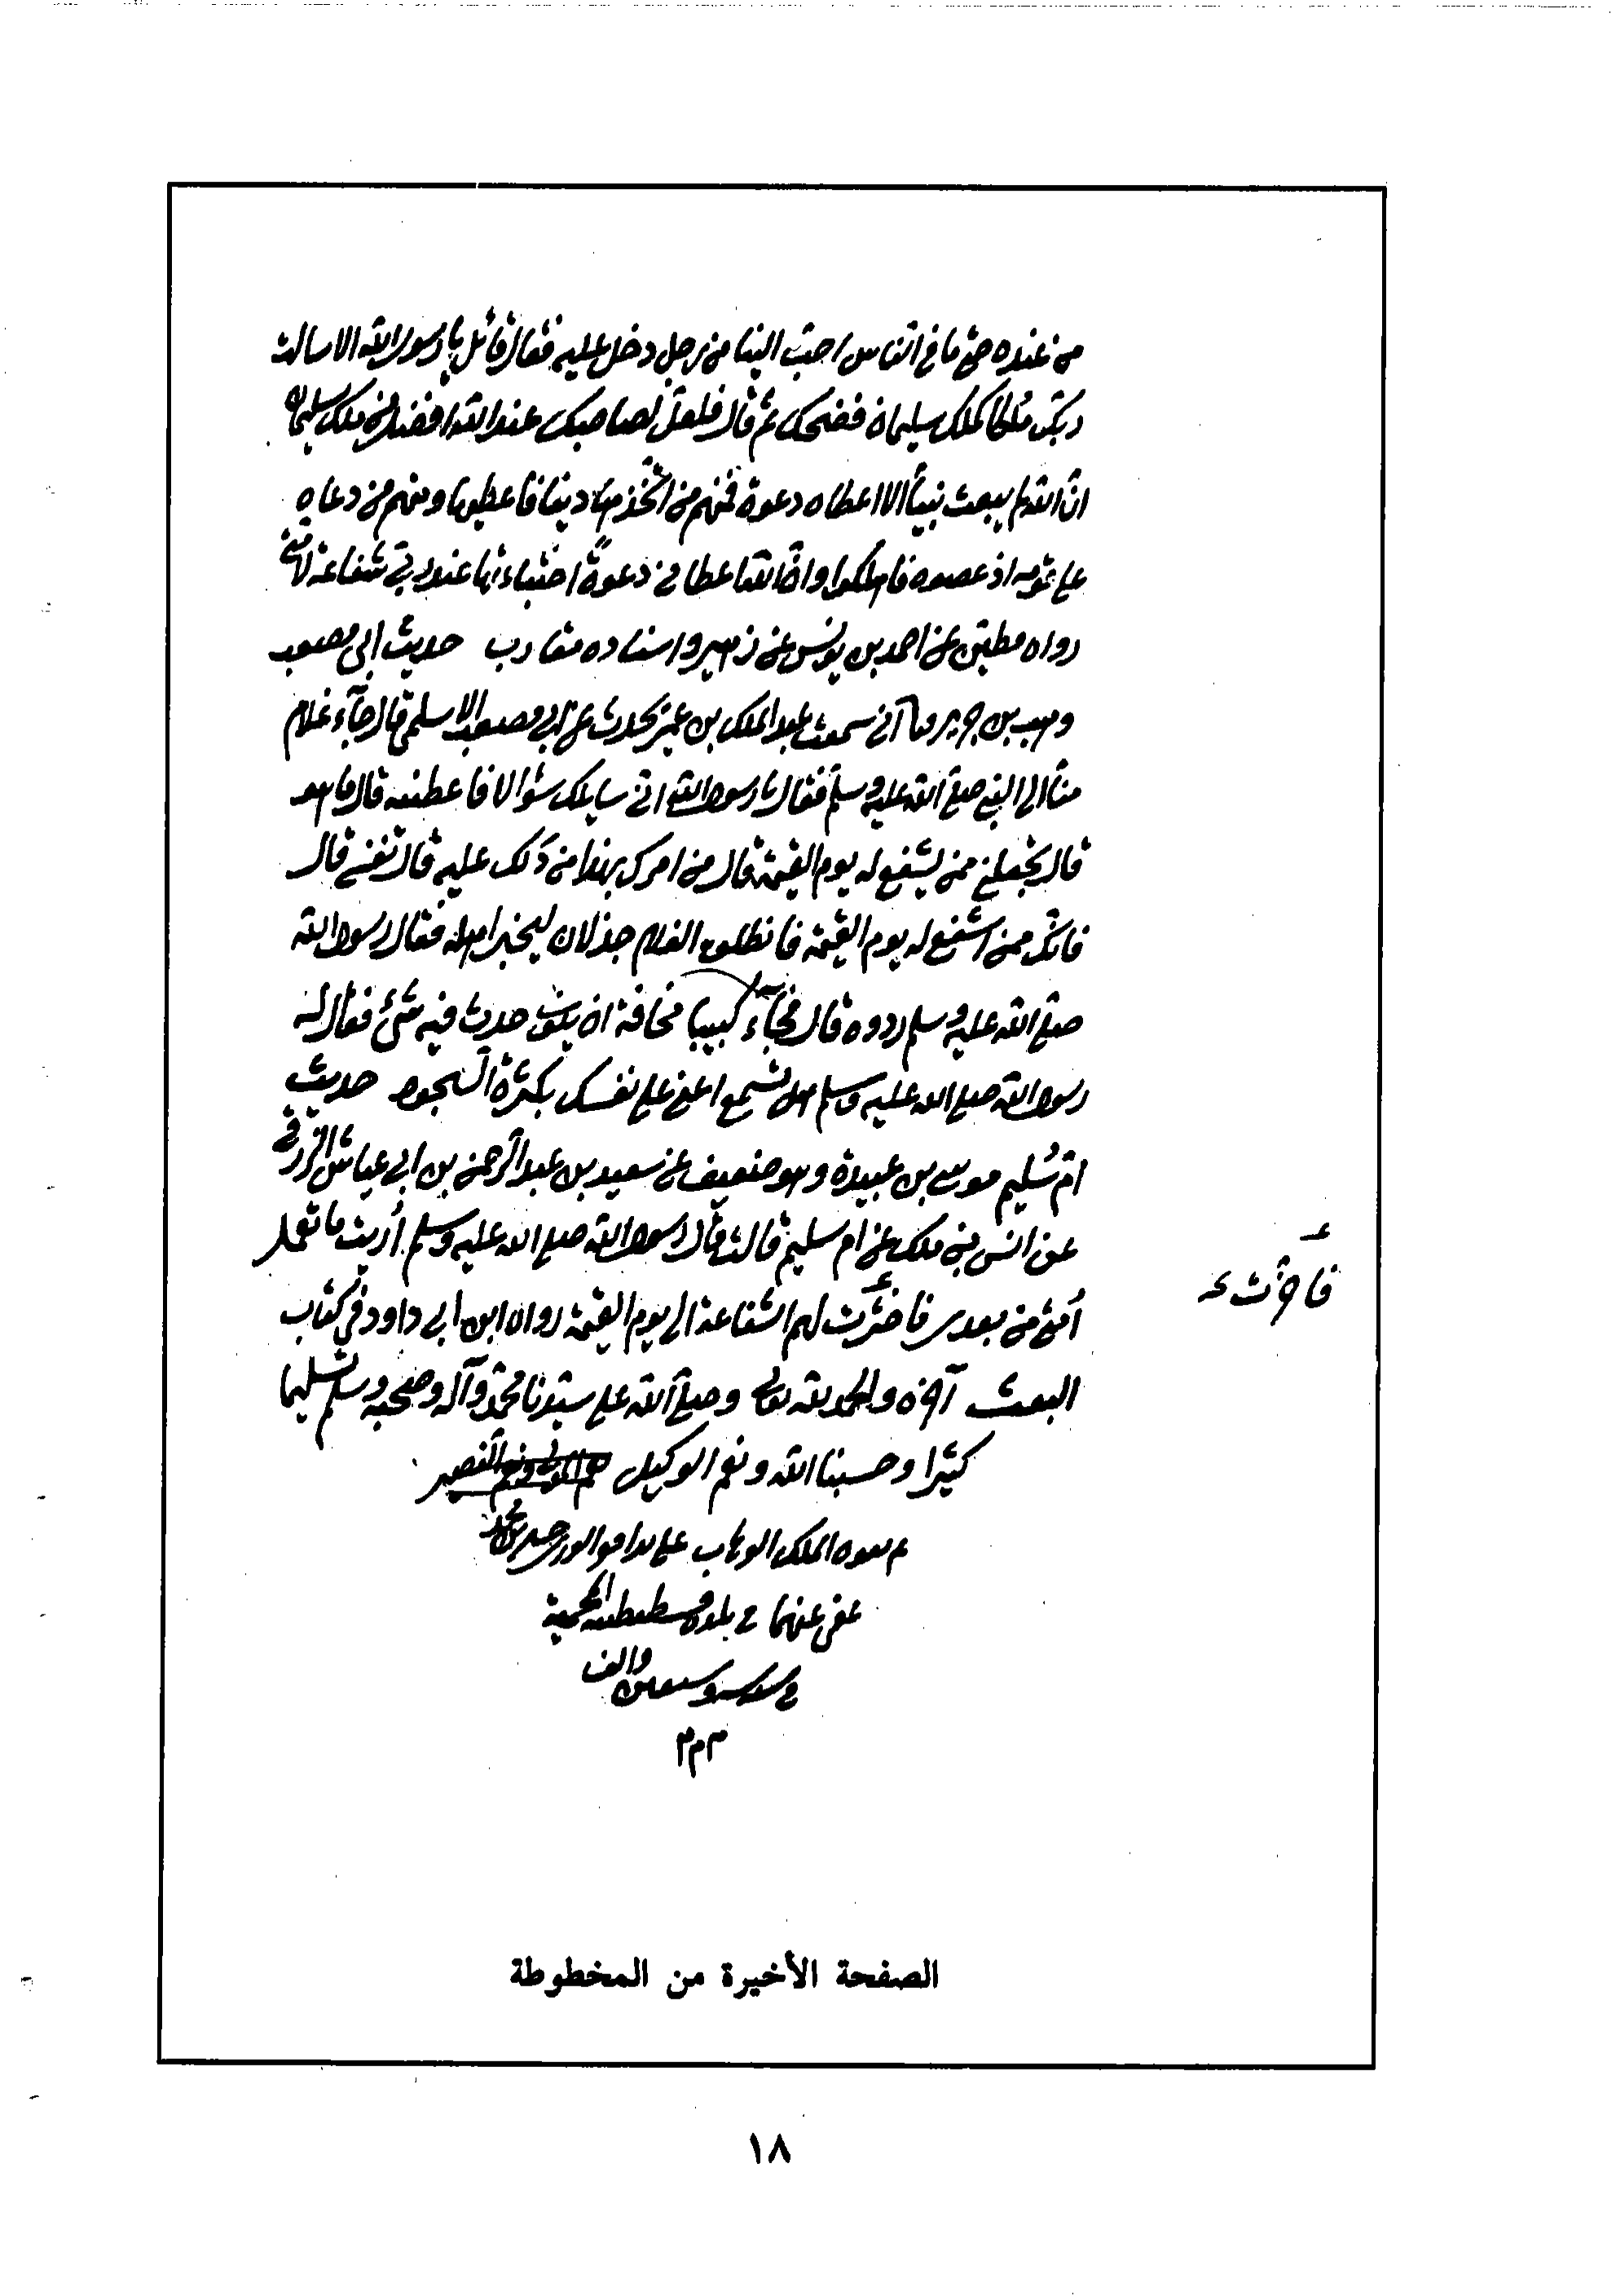 من عنده حتى ما في الناس احب الينا من رجل دخل عليه فقال قائل يا رسول الله الا سالت
ربك ملكا كملك سليمان فضحك ثم قال فلعل لصاحبك عند الله افضل من ملك سليمان
ان الله لم يبعث نبيا الا اعطاه دعوة فمنهم من اتخذ بها دينا فاعطيها ومنهم من دعا به
على قومه اذ عصوه فاهلكوا وان الله اعطاني دعوة اختباءتها عند ربي شفاعة لامتي
رواه مطين عن احمد بن يونس عن زهير واسناده مقارب حديث ابي مصعب
وهب بن جرير سمعت عبد الملك بن عمير يحدث عن ابي مصعب الاسلمي قال جآء غلام
منا الى النبي صلى الله عليه وسلم فقال يا رسول الله اني سايلك سؤالا فاعطنيه قال ما هو
قال تجعلني ممن يشفع له يوم القيمة قال من امرك بهذا من دلك عليه قال نفسي قال
فانك ممن اشفع له يوم القيمة فانطلق الغلام جذلان ليخبر اهله فقال رسول الله
صلى الله عليه وسلم ردوه قال فجآء كئيبا مخافة ان يكون حدث فيه شئ فقال له
رسول الله صلى الله عليه وسلم اعني على نفسك بكثرة السجود حديث
ام سُليم موسى بن عبيدة وهو ضعيف عن سعيد بن عبد الرحمن بن ابي عياش الزرقي
عن انس بن ملك عن ام سليم قالت قال رسول الله صلى الله عليه وسلم أُريت ما تعمل
أُمتي من بعدي فاخترت لهم الشفاعة الى يوم القيمة رواه ابن ابي داود في كتاب
البعث آخره والحمد لله تعالى وصلى الله على سيدنا محمد وآله وصحبه وسلم تسليما
كثيرا وحسبنا الله ونعم الوكيل نعم المولى ونعم النصير
الملك الوهاب على
عفى عنهما في بلدة قسطنطينية المحمية
في سنة وسبعين والف
م م م
فاخرت
الصفحة الأخيرة من المخطوطة
١٨